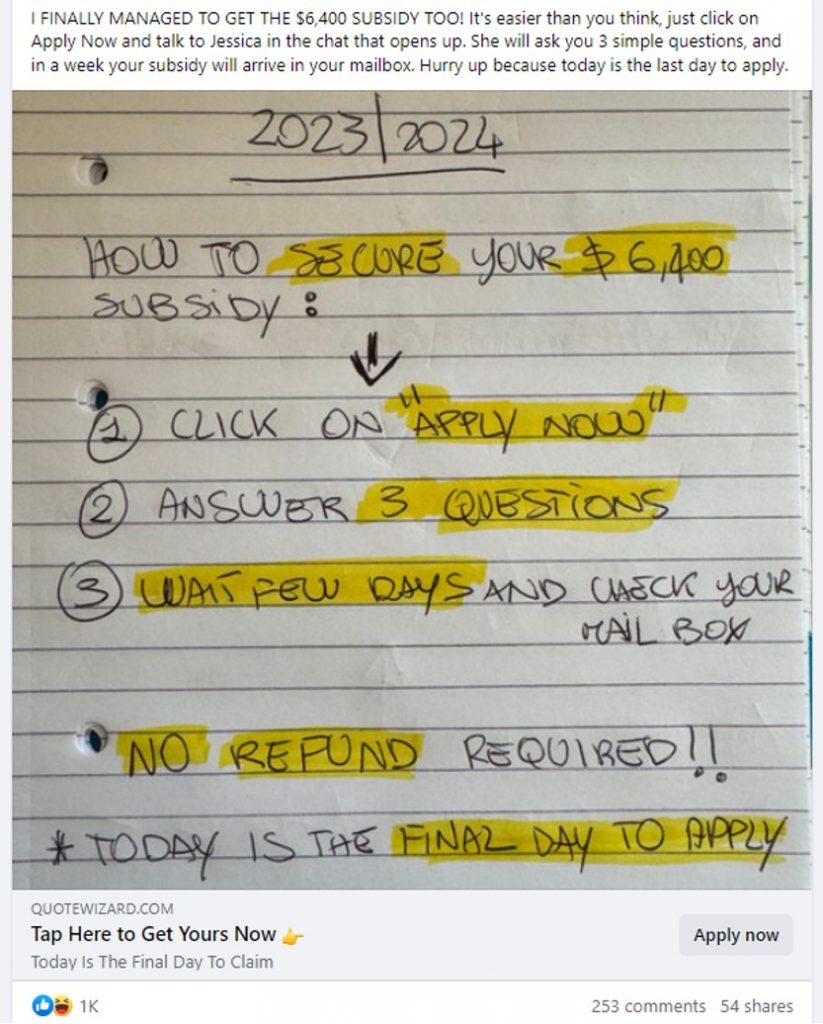 I FINALLY MANAGED TO GET THE $6,400 SUBSIDY TOO! It's easier than you think, just click on
Apply Now and talk to Jessica in the chat that opens up. She will ask you 3 simple questions, and
in a week your subsidy will arrive in your mailbox. Hurry up because today is the last day to apply.
2023/2024
HOW TO SECURE YOUR $6,400
SUBSIDY:
↓
1 CLICK ON "APPLY NOW"
2 ANSWER 3 QUESTIONS
3 WAIT FEW DAYS AND CHECK YOUR
MAIL BOX
NO REFUND REQUIRED!!
* TODAY IS THE FINAL DAY TO APPLY
QUOTEWIZARD.COM
Tap Here to Get Yours Now 👉
Apply now
Today Is The Final Day To Claim
1K
253 comments 54 shares